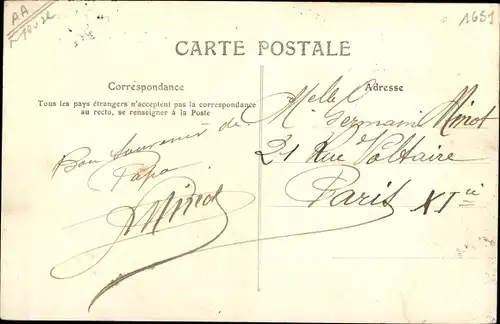 AA
1651
CARTE POSTALE
Correspondance
Tous les pays étrangers n'acceptent pas la correspondance
au recto, se renseigner à la Poste
Bon souvenir de
Papa
Minot
Adresse
Melle
Germaine Minot
21 Rue Voltaire
Paris XIe